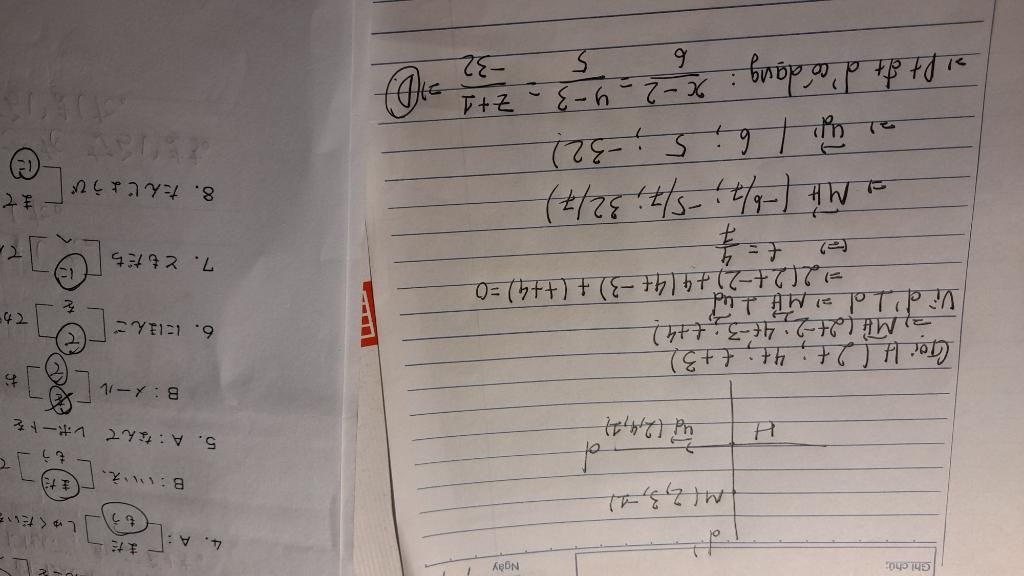 Ghi chú:
Ngày
d'
M(2,3,-1)
H
u⃗d (2,4,1)
d
Gọi H (2t; 4t; t+3)
=> MH⃗ (2t-2; 4t-3; t+4)
Vì d' ⊥ d => MH⃗ ⊥ u⃗d
=> 2(2t-2)+4(4t-3)+(t+4)=0
<=> t = 4/7
=> MH⃗ (-6/7; -5/7; 32/7)
=> u⃗d' (6; 5; -32)
=> Pt đt d' có dạng: x-2/6 = y-3/5 = z+1/-32 => D
4. A:
まだ
もう
しゅくだい
B: いいえ、
まだ
もう
5. A: なんで レポートを
B: メール
を
で
6. にほんご
で
を
7. ともだち
に
へ
8. たんじょうび
まで
に